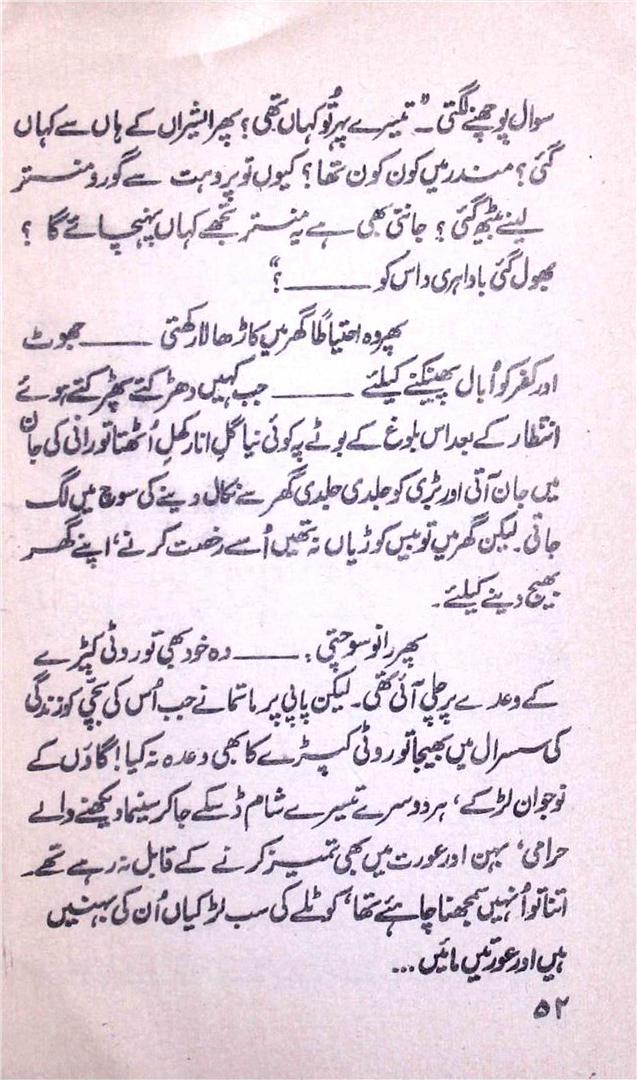 سوال پوچھنے لگتی۔ ”تیسرے پہر تُو کہاں تھی؟ پھر ایشراں کے ہاں سے کہاں
گئی؟ مندر میں کون کون تھا؟ کیوں تو پروہت سے گورو منستر
لینے بیٹھ گئی؟ جانتی بھی ہے یہ منستر تجھے کہاں پہنچائے گا ؟
بھول گئی باوا ہری داس کو ——— ؟“
پھر وہ احتیاطاً گھر میں کاڑھا لا رکھتی ——— جھوٹ
اور کفر کو اُبال پھینکنے کیلئے ——— جب کہیں دھڑکتے پھڑکتے ہوئے
انتظار کے بعد اس بلوغ کے بوٹے پہ کوئی نیا گلِ انار کھِل اُٹھتا تو رانی کی جان
میں جان آتی اور بڑی کو جلدی جلدی گھر سے نکال دینے کی سوچ میں لگ
جاتی۔ لیکن گھر میں تو بیس کوڑیاں نہ تھیں اُسے رخصت کرنے، اپنے گھر
بھیج دینے کیلئے۔
پھر رانو سوچتی: ——— وہ خود بھی تو روٹی کپڑے
کے وعدے پر چلی آئی تھی۔ لیکن پاپی پرماتما نے جب اُس کی بچی کو زندگی
کی سسرال میں بھیجا تو روٹی کپڑے کا بھی وعدہ نہ کیا! گاؤں کے
نوجوان لڑکے، ہر دوسرے تیسرے شام ڈسکے جا کر سینما دیکھنے والے
حرامی، بہن اور عورت میں بھی تمیز کرنے کے قابل نہ رہے تھے۔
اتنا تو اُنہیں سمجھنا چاہئے تھا، کوٹلے کی سب لڑکیاں اُن کی بہنیں
ہیں اور عورتیں مائیں ...
۵۲